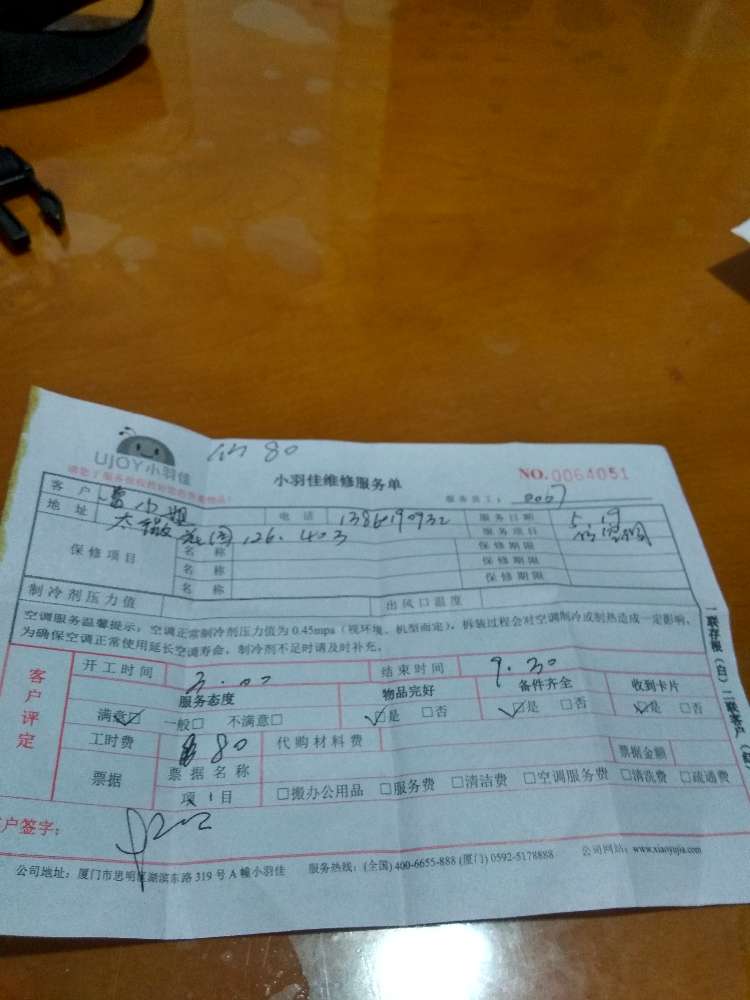 UJOY小羽佳
80
小羽佳维修服务单
NO.0064051
服务员工: 0067
客户 小姐 电话 服务日期 5.9
地址 126.403 服务项目 空调
保修项目 名称 保修期限
名称 保修期限
名称 保修期限
制冷剂压力值 出风口温度
空调服务温馨提示:空调正常制冷剂压力值为0.45mpa(视环境、机型而定),拆装过程会对空调制冷或制热造成一定影响,
为确保空调正常使用延长空调寿命,制冷剂不足时请及时补充。
客户评定
开工时间 结束时间 9.30
服务态度 物品完好 备件齐全 收到卡片
满意☑ 一般□ 不满意□ ☑是 □否 ☑是 □否 ☑是 □否
工时费 80 代购材料费
票据 票据名称 票据金额
项目 □搬办公用品 □服务费 □清洁费 □空调服务费 □清洗费 □疏通费
户签字:
公司地址:厦门市思明区湖滨东路319号A幢小羽佳 服务热线:(全国)400-6655-888(厦门)0592-5178888 公司网站:www.xiaoyujia.com
一联存根(白)二联客户